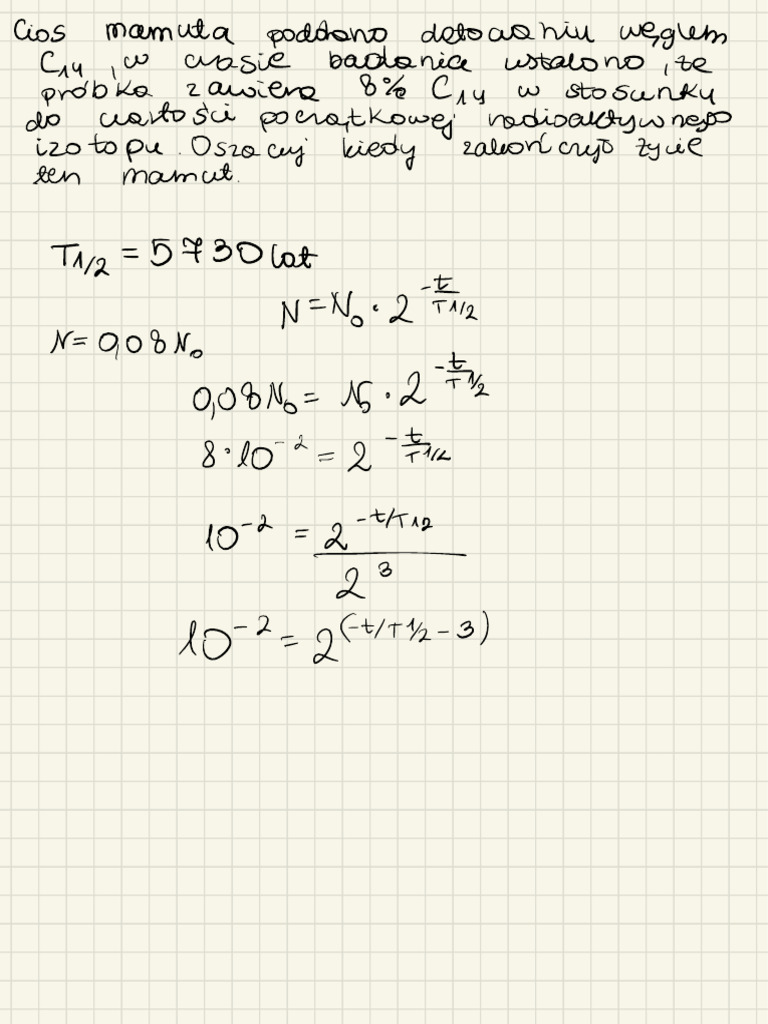 Cios mamuta poddano datowaniu węglem
C₁₄, w czasie badania ustalono, że
próbka zawiera 8% C₁₄ w stosunku
do wartości początkowej radioaktywnego
izotopu. Oszacuj kiedy zakończył życie
ten mamut.
T1/2 = 5730 lat
N = N₀ · 2^(-t/T1/2)
N = 0,08 N₀
0,08 N₀ = N₀ · 2^(-t/T1/2)
8 · 10^(-2) = 2^(-t/T1/2)
10^(-2) = 2^(-t/T12) / 2^3
10^(-2) = 2^(-t/T1/2 - 3)